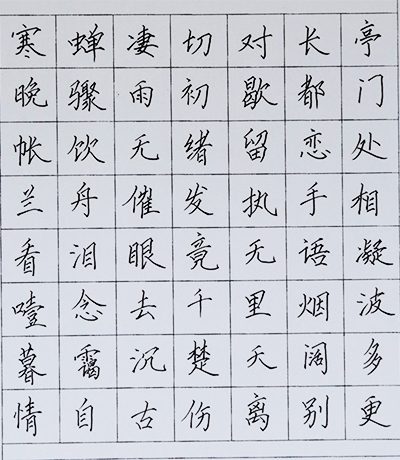 寒蝉凄切对长亭
晚骤雨初歇都门
帐饮无绪留恋处
兰舟催发执手相
看泪眼竟无语凝
噎念去千里烟波
暮霭沉楚天阔多
情自古伤离别更